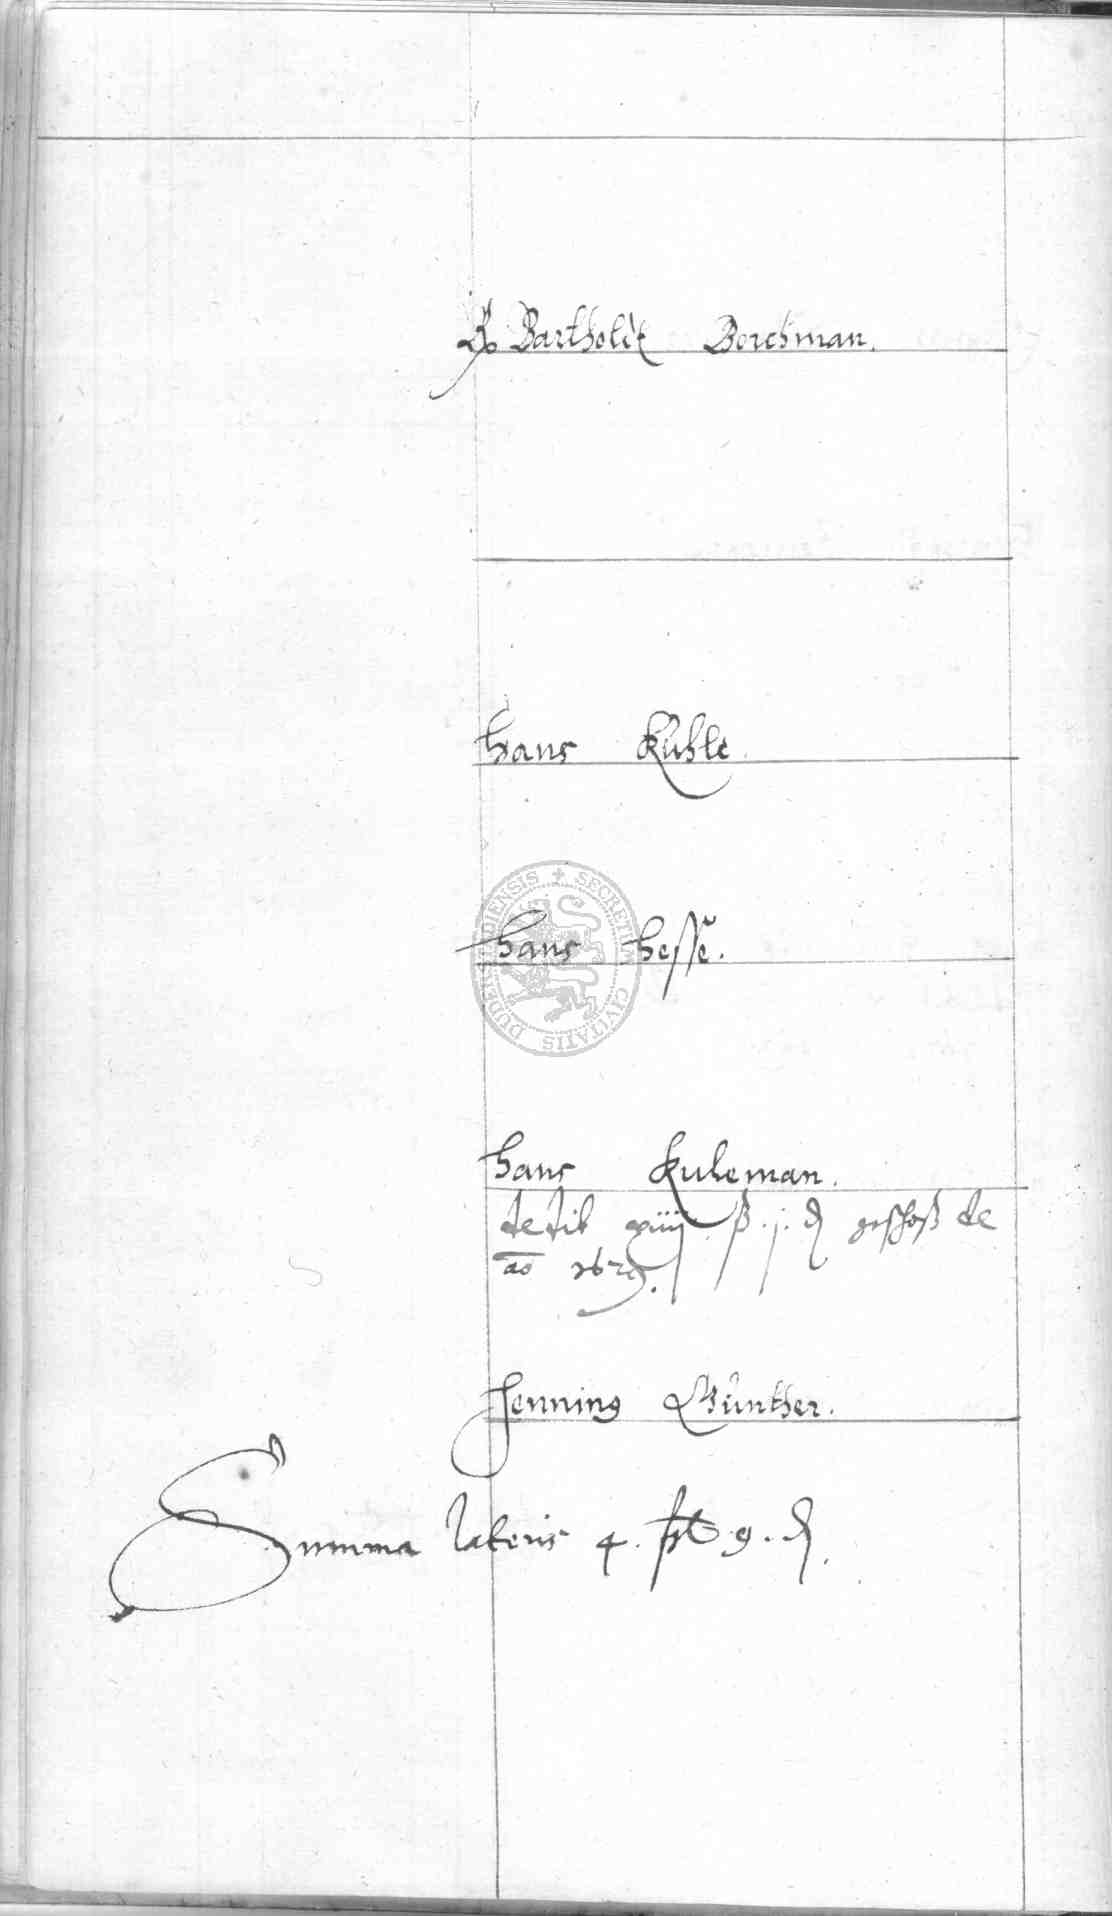 Bartholdt Borchman.
Hans Kühle.
Hans Hesse.
SECRETUM CIVITATIS DUDERSTADIENSIS
Hans Kuleman.
dedit xiiij ß. j. ₰ geschoß de
ao 1629.
Henning Günther.
Summa lateris 4. 9. ₰.